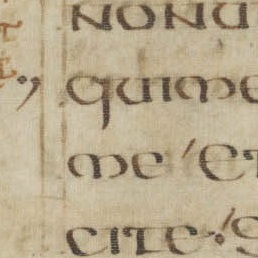 NONU
quime
me et
cite · s